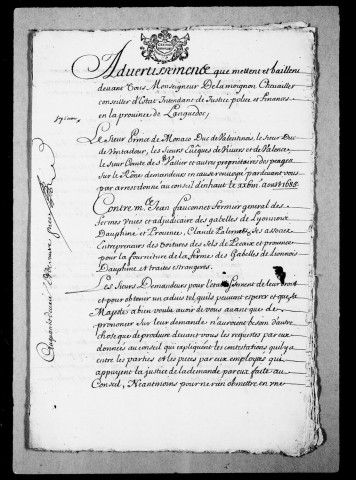 Advertissement que mettent et baillent
devant vous Monseigneur Delamoignon Chevailler
conseiller d'Estat Intendant de Justice police et finances
en la province de Languedoc,
Le Sieur Prince de Monaco Duc de Valentinois, le Sieur Duc
de Ventadour, les Sieurs Evêques de Viviers et de Valence,
le Sieur Comte de St Vallier et autres proprietaires des peages
sur le Rône demandeurs en cause renvoyée pardevant vous
par arrest donné au conseil d'enhaut le xxviii. aoust 1688
Contre Me. Jean fauconnet fermier general des
fermes unies et adjudicaire des gabelles de Lyonnois
Dauphine et Provence, Claude et ses associez
Entrepreneurs des Voitures des Sels de Pecaix et provence
pour la fourniture de la ferme des Gabelles de Lionnois
Dauphine et traites estrangeres.
Les Sieurs Demandeurs pour l'establissement de leur droit
et pour obtenir un advis tel, qu'ils peuvent esperer et que, Sa
Majesté a bien voulu avoir de vous avant que de
prononcer sur leur demande n'auroient besoin d'autre
chose que de produire devant vous les requestes par eux
données au conseil qui expliquent les contestations qu'il y a
entre les parties et les pieces par eux employées qui
appuyent la justice de la demande par eux faite au
Conseil, Néantmoins pour ne rien obmettre en une